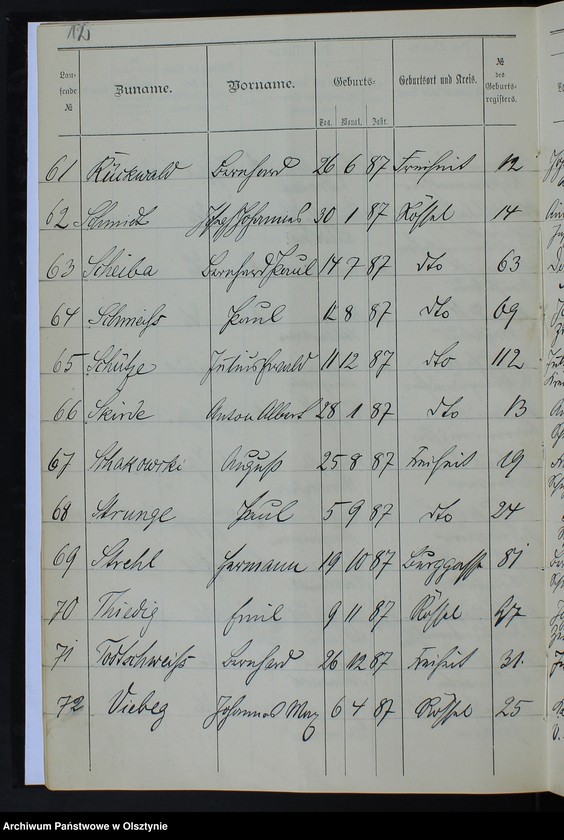 Lau-
fende
№
Zuname.
Vorname.
Geburts-
Tag. Monat. Jahr.
Geburtsort und Kreis.
№
des
Geburts-
registers.
61 Rückwald Bernhard 26 6 87 Freiheit 12
62 Schmidt Johannes 30 1 87 Rössel 14
63 Scheiba Bernhard Paul 14 7 87 dto 63
64 Paul 12 8 87 dto 69
65 Schütze Julius Ewald 11 12 87 dto 112
66 Skirde Anton Albert 28 1 87 dto 13
67 August 25 8 87 Freiheit 19
68 Strunge Paul 5 9 87 dto 24
69 Strehl Hermann 19 10 87 Burggasse
70 Thiedig Emil 9 11 87 Rössel
71 Todtschweiß Bernhard 26 12 87 Freiheit 31.
72 Viebeg Johannes Max 6 4 87 Rössel 25
Archiwum Państwowe w Olsztynie